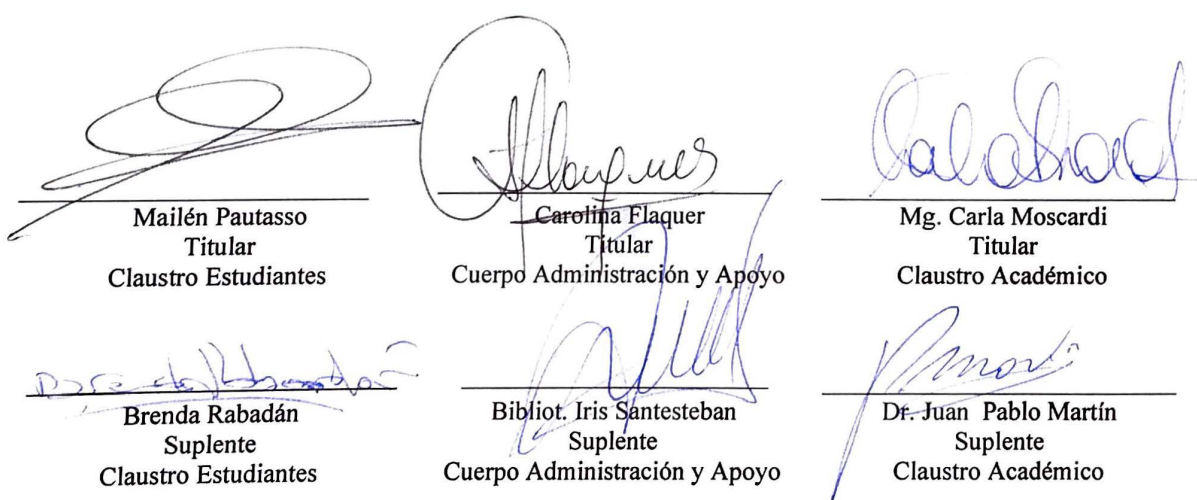 Mailén Pautasso
Titular
Claustro Estudiantes
Carolina Flaquer
Titular
Cuerpo Administración y Apoyo
Mg. Carla Moscardi
Titular
Claustro Académico
Brenda Rabadán
Suplente
Claustro Estudiantes
Bibliot. Iris Santesteban
Suplente
Cuerpo Administración y Apoyo
Dr. Juan Pablo Martín
Suplente
Claustro Académico